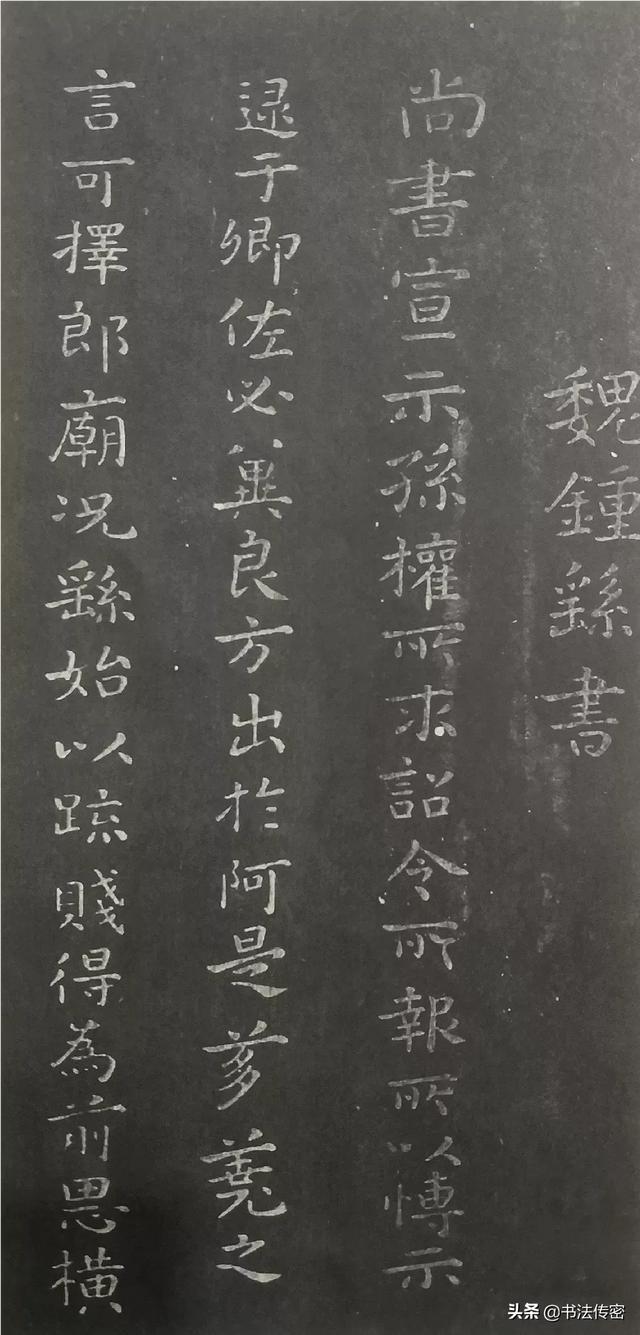 魏鍾繇書
尚書宣示孫權所求詔令所報所以博示
逮于卿佐必冀良方出於阿是芻蕘之
言可擇郎廟況繇始以疏賤得為前恩橫
头条 @书法传密